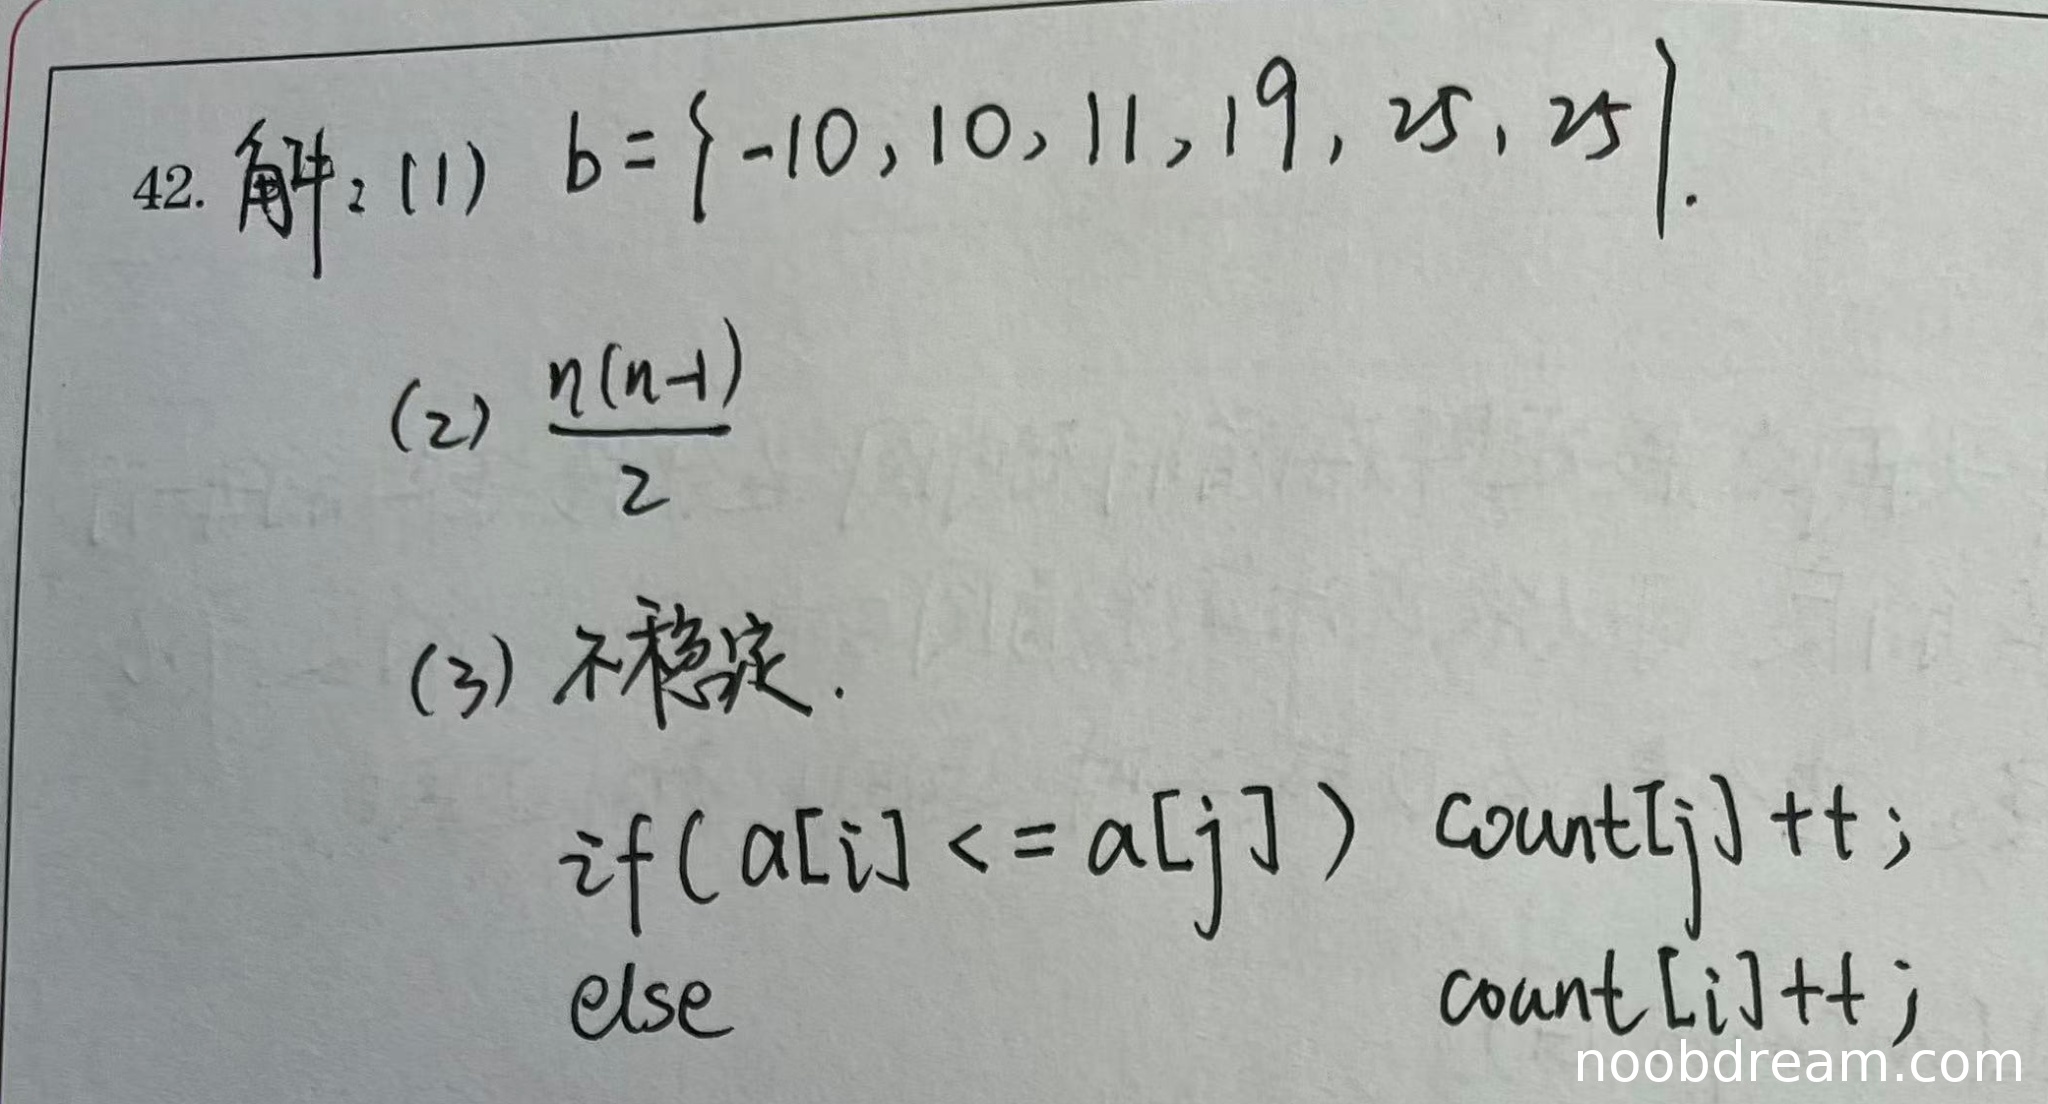 42. 解:(1) b={-10, 10, 11, 19, 25, 25}.
(2) n(n-1)/2
(3) 不稳定.
if(a[i]<=a[j]) count[j]++;
else count[i]++;
noobdream.com